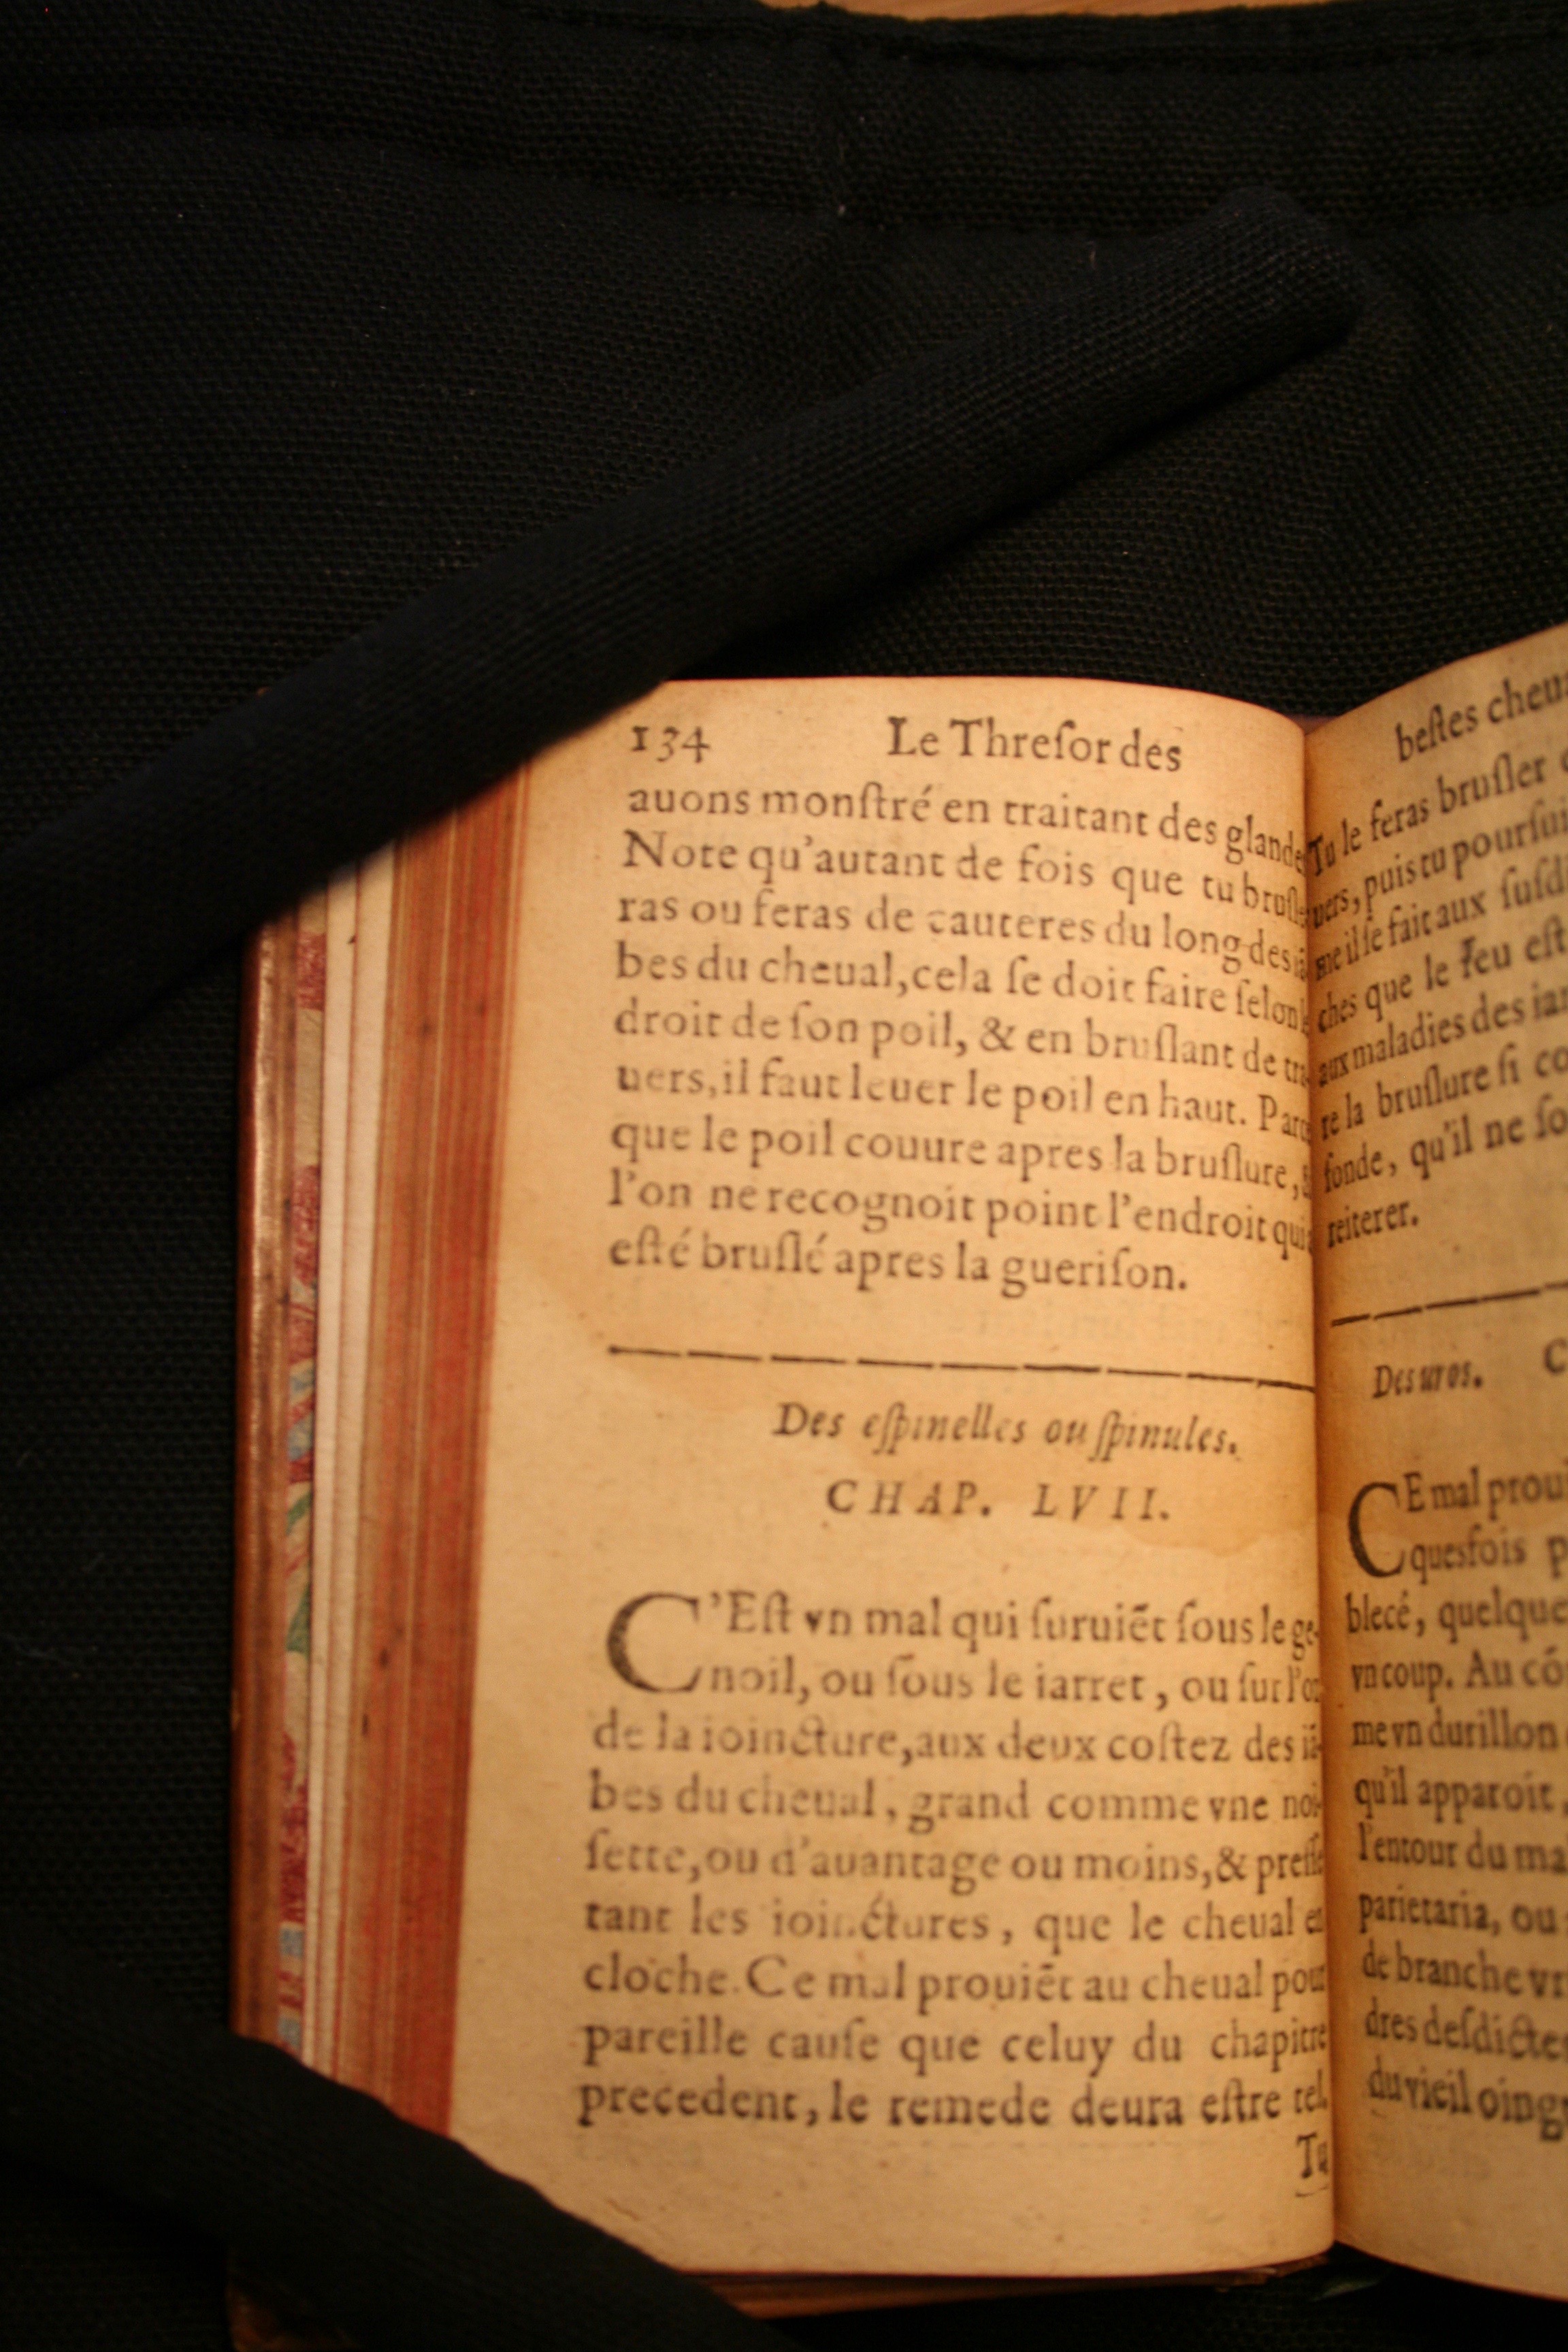 134 Le Threſor des
auons monſtré en traitant des glande
Note qu'autant de fois que tu bruſle
ras ou feras de cauteres du long des iã
bes du cheual, cela ſe doit faire ſelon
droit de ſon poil, & en bruſlant de tra
uers, il faut leuer le poil en haut. Parce
que le poil couure apres la bruſlure,
l'on ne recognoit point l'endroit qui
eſté bruſlé apres la gueriſon.
Des eſpinelles ou ſpinules.
CHAP. LVII.
C'Eſt vn mal qui ſuruiẽt ſous le ge-
noil, ou ſous le iarret, ou ſur l'os
de la ioincture, aux deux coſtez des iã-
bes du cheual, grand comme vne noi-
ſette, ou d'auantage ou moins, & preſſe
tant les ioinctures, que le cheual en
cloche. Ce mal prouiẽt au cheual pour
pareille cauſe que celuy du chapitre
precedent, le remede deura eſtre tel.
Tu
beſtes cheu
Tu le feras bruſler
uers, puis tu pourſui
me il ſe fait aux ſuſd
ches que le feu eſt
aux maladies des iar
re la bruſlure ſi co
fonde, qu'il ne ſo
reiterer.
Des uros. C
CE mal prou
quesfois p
blecé, quelque
vn coup. Au cõ
me vn durillon
qu'il apparoit
l'entour du ma
parietaria, ou
de branche vr
dres deſdicte
du vieil oing